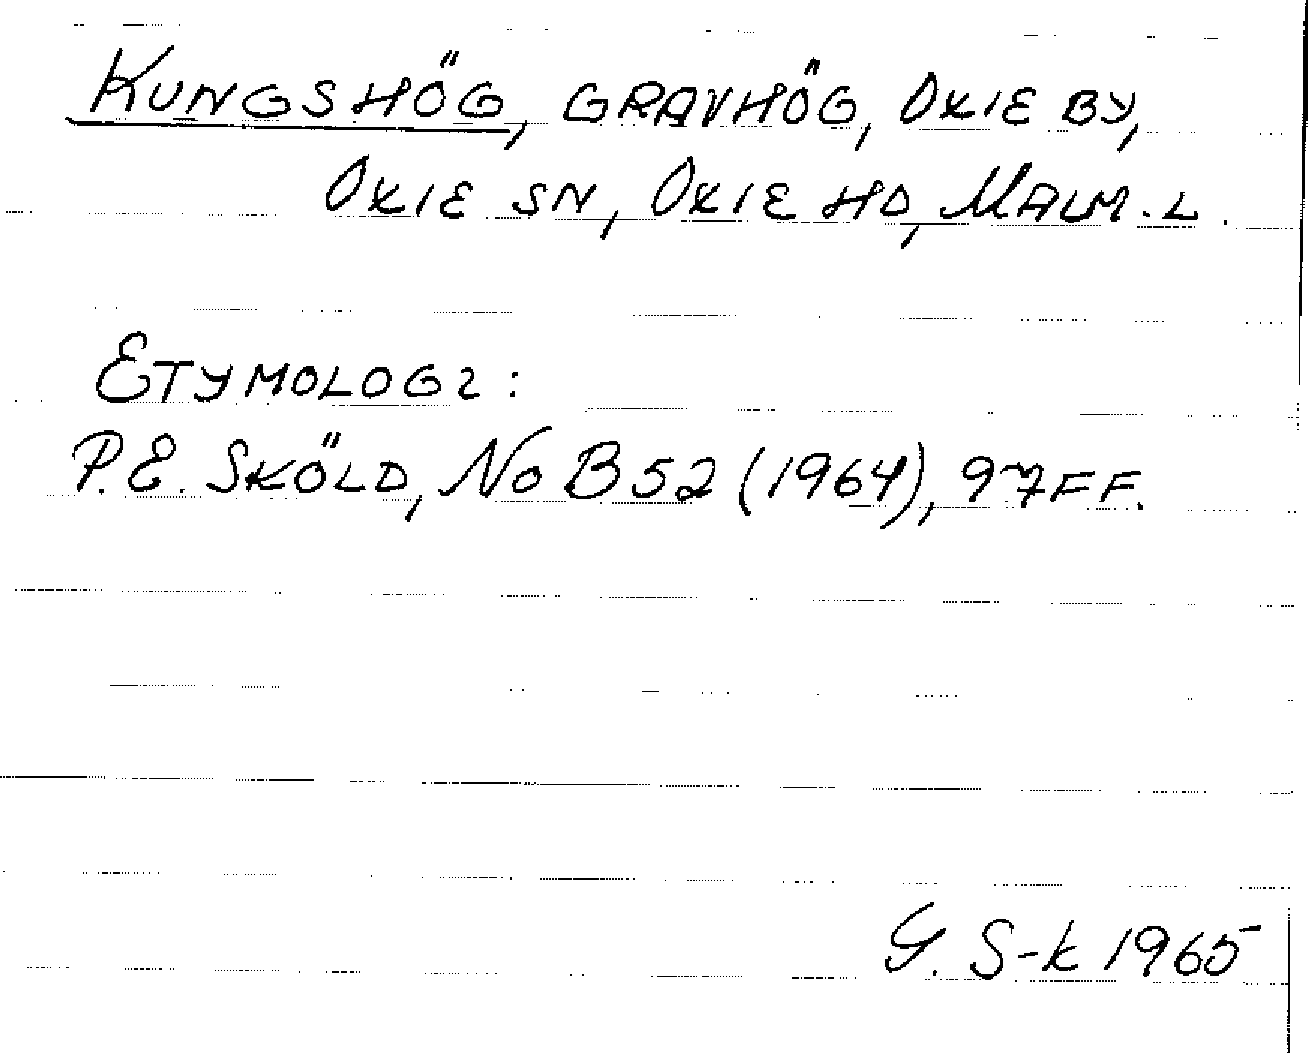 KUNGSHÖG, GRAVHÖG, OXIE BY,
OXIE SN, OXIE HD, MALM.L.
ETYMOLOGI:
P.E. SKÖLD, NoB 52 (1964), 97FF.
G. S-k 1965